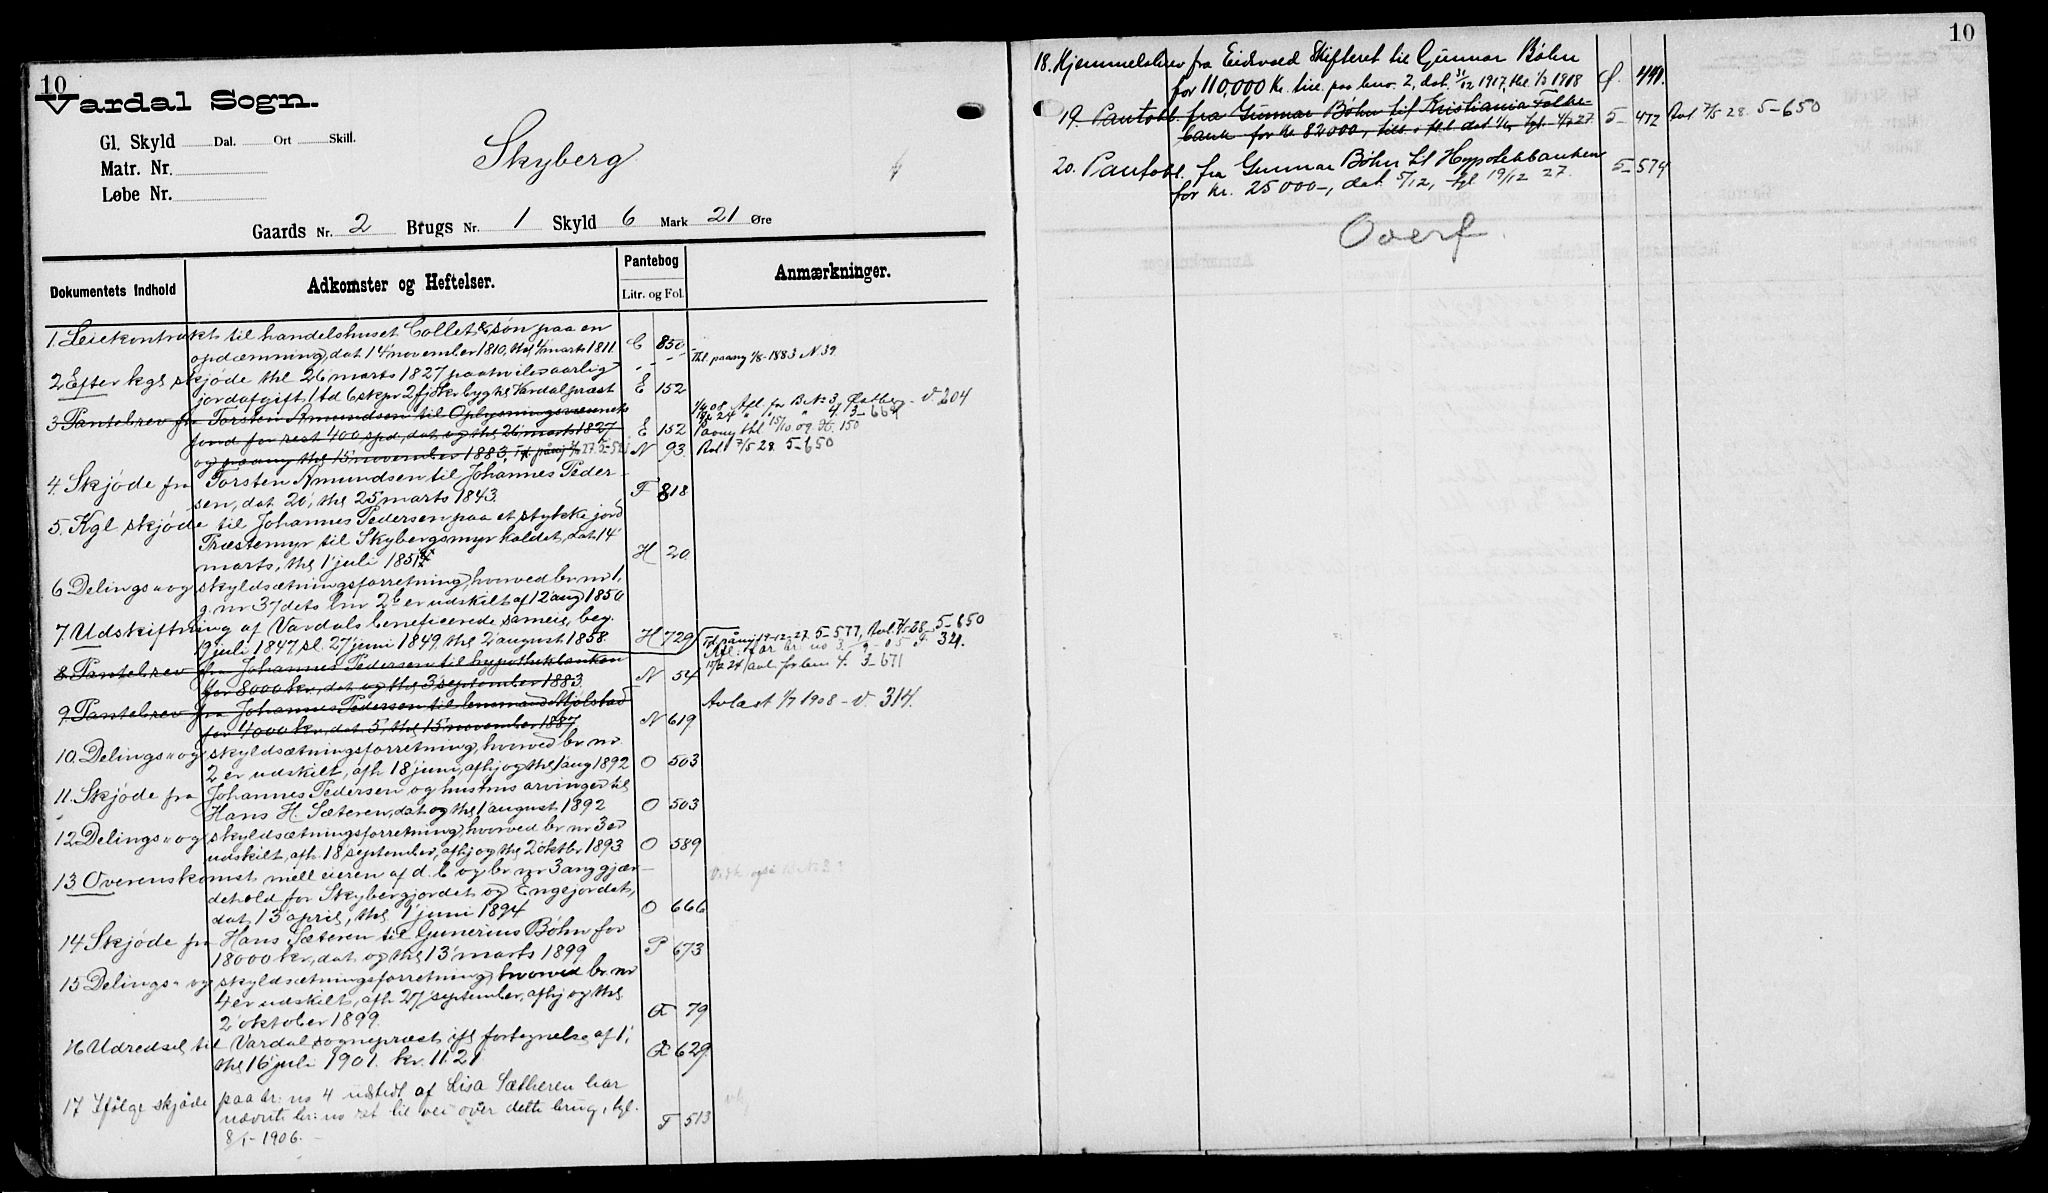 10
Vardal Sogn.
Gl. Skyld Dal. Ort Skill.
Matr. Nr.
Løbe Nr.
Skyberg
Gaards Nr. 2 Brugs Nr. 1 Skyld 6 Mark 21 Øre
Dokumentets Indhold Adkomster og Heftelser. Pantebog Litr. og Fol. Anmærkninger.
1. Leiekontrakt til handelshuset Collet & søn paa en
opdæmning, dat 14 november 1810, thl 4 marts 1811. C 850
Thl. paany 1/8-1883 N. 39
2 Efter kgl skjøde thl 26 marts 1827 paahviler aarlig
jordafgift, 1 td 6 skpr 2 fjdkr byg til Vardal præst E 152
3 Pantebrev fra Torsten Amundsen til Oplysningsvæsenets
fond for rest 400 spd, dat og thl 26 marts 1827 E 152
og paany thl 15 november 1883, N 93.
Avl 7/5 28. 5-650
4. Skjøde fra Torsten Amundsen til Johannes Peder-
sen, dat 20, thl 25 marts 1843. F 818
5. Kgl skjøde til Johannes Pedersen paa et stykke jord
Præstemyr til Skybergsmyr kaldet, dat 14
marts, thl 1 juli 185 H 20
6 Delings- og skyldsætningsforretning, hvorved br nr 1,
g. nr 37 dets lnr 2b er udskilt af 12 aug 1850
7 Udskiftning af Vardals beneficerede sameie, beg.
19 juli 1847 sl. 27 juni 1849, thl 2 august 1858. H 729
8 Pantebrev fra Johannes Pedersen til hypothekbanken
for 8000 kr, dat og thl 3 september 1883. N 54
Td påny 19-12-27. 5-577, Avl. 7/5 28 5-650
3-671
9. Pantebrev fra Johannes Pedersen til lensmand Mjølstad
for 4000 kr, dat 5, thl 15 november 1887 N 619
Avlæst 1/7 1908 - V. 314.
10. Delings- og skyldsætningsforretning, hvorved br nr
2 er udskilt, afh 18 juni, afhj og thl 1 aug 1892 O 503
11. Skjøde fra Johannes Pedersen og hustrus arvinger til
Hans H. Sæteren, dat og thl 1 august 1892 O 503
12 Delings- og skyldsætningsforretning, hvorved br nr 3 er
udskilt, afh. 18 september, afhj og thl 2 oktbr 1893 O 589
13 Overenskomst mell eieren af d. b og br nr 3 ang gjær-
dehold for Skybergjordet og Engejordet,
dat 13 april, thl 1 juni 1894 O 666
14 Skjøde fra Hans Sæteren til Gunerius Bøhn for
18000 kr, dat og thl 13 marts 1899 P 673
15 Delings- og skyldsætningsforretning, hvorved br nr
4 er udskilt, afh 27 september, afhj og thl
2 oktober 1899. 79
16 Udredsel til Vardal sognepræst ifl fortegnelse af 1,
thl 16 juli 1901. kr. 11.21 629.
17 Ifølge skjøde paa br: no 4 udstedt af Lisa Sætheren har
nævnte br: no ret til vei over dette brug, tgl.
8/1-1906. T 513
10
18. Hjemmelsbrev fra Eidsvold Skifteret til Gunnar Bøhn
for 110,000 Kr. till. paa brno. 2, dat. 31/12 1917, thl. 1/3 1918 441.
19. Pantobl. fra Gunnar Bøhn til Kristiania Folke-
bank for kr 82000, 27. 5- 472 Avl 7/5 28. 5-650
20. Pantobl. fra Gunnar Bøhn til Hypotekbanken
for kr. 25000-, dat 5/12, tgl 19/12 27. 5-574
Overf.